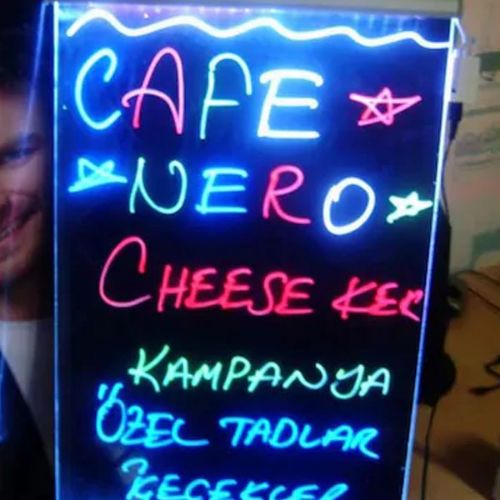 CAFE
NERO
CHEESE KEK
KAMPANYA
ÖZEL TADLAR